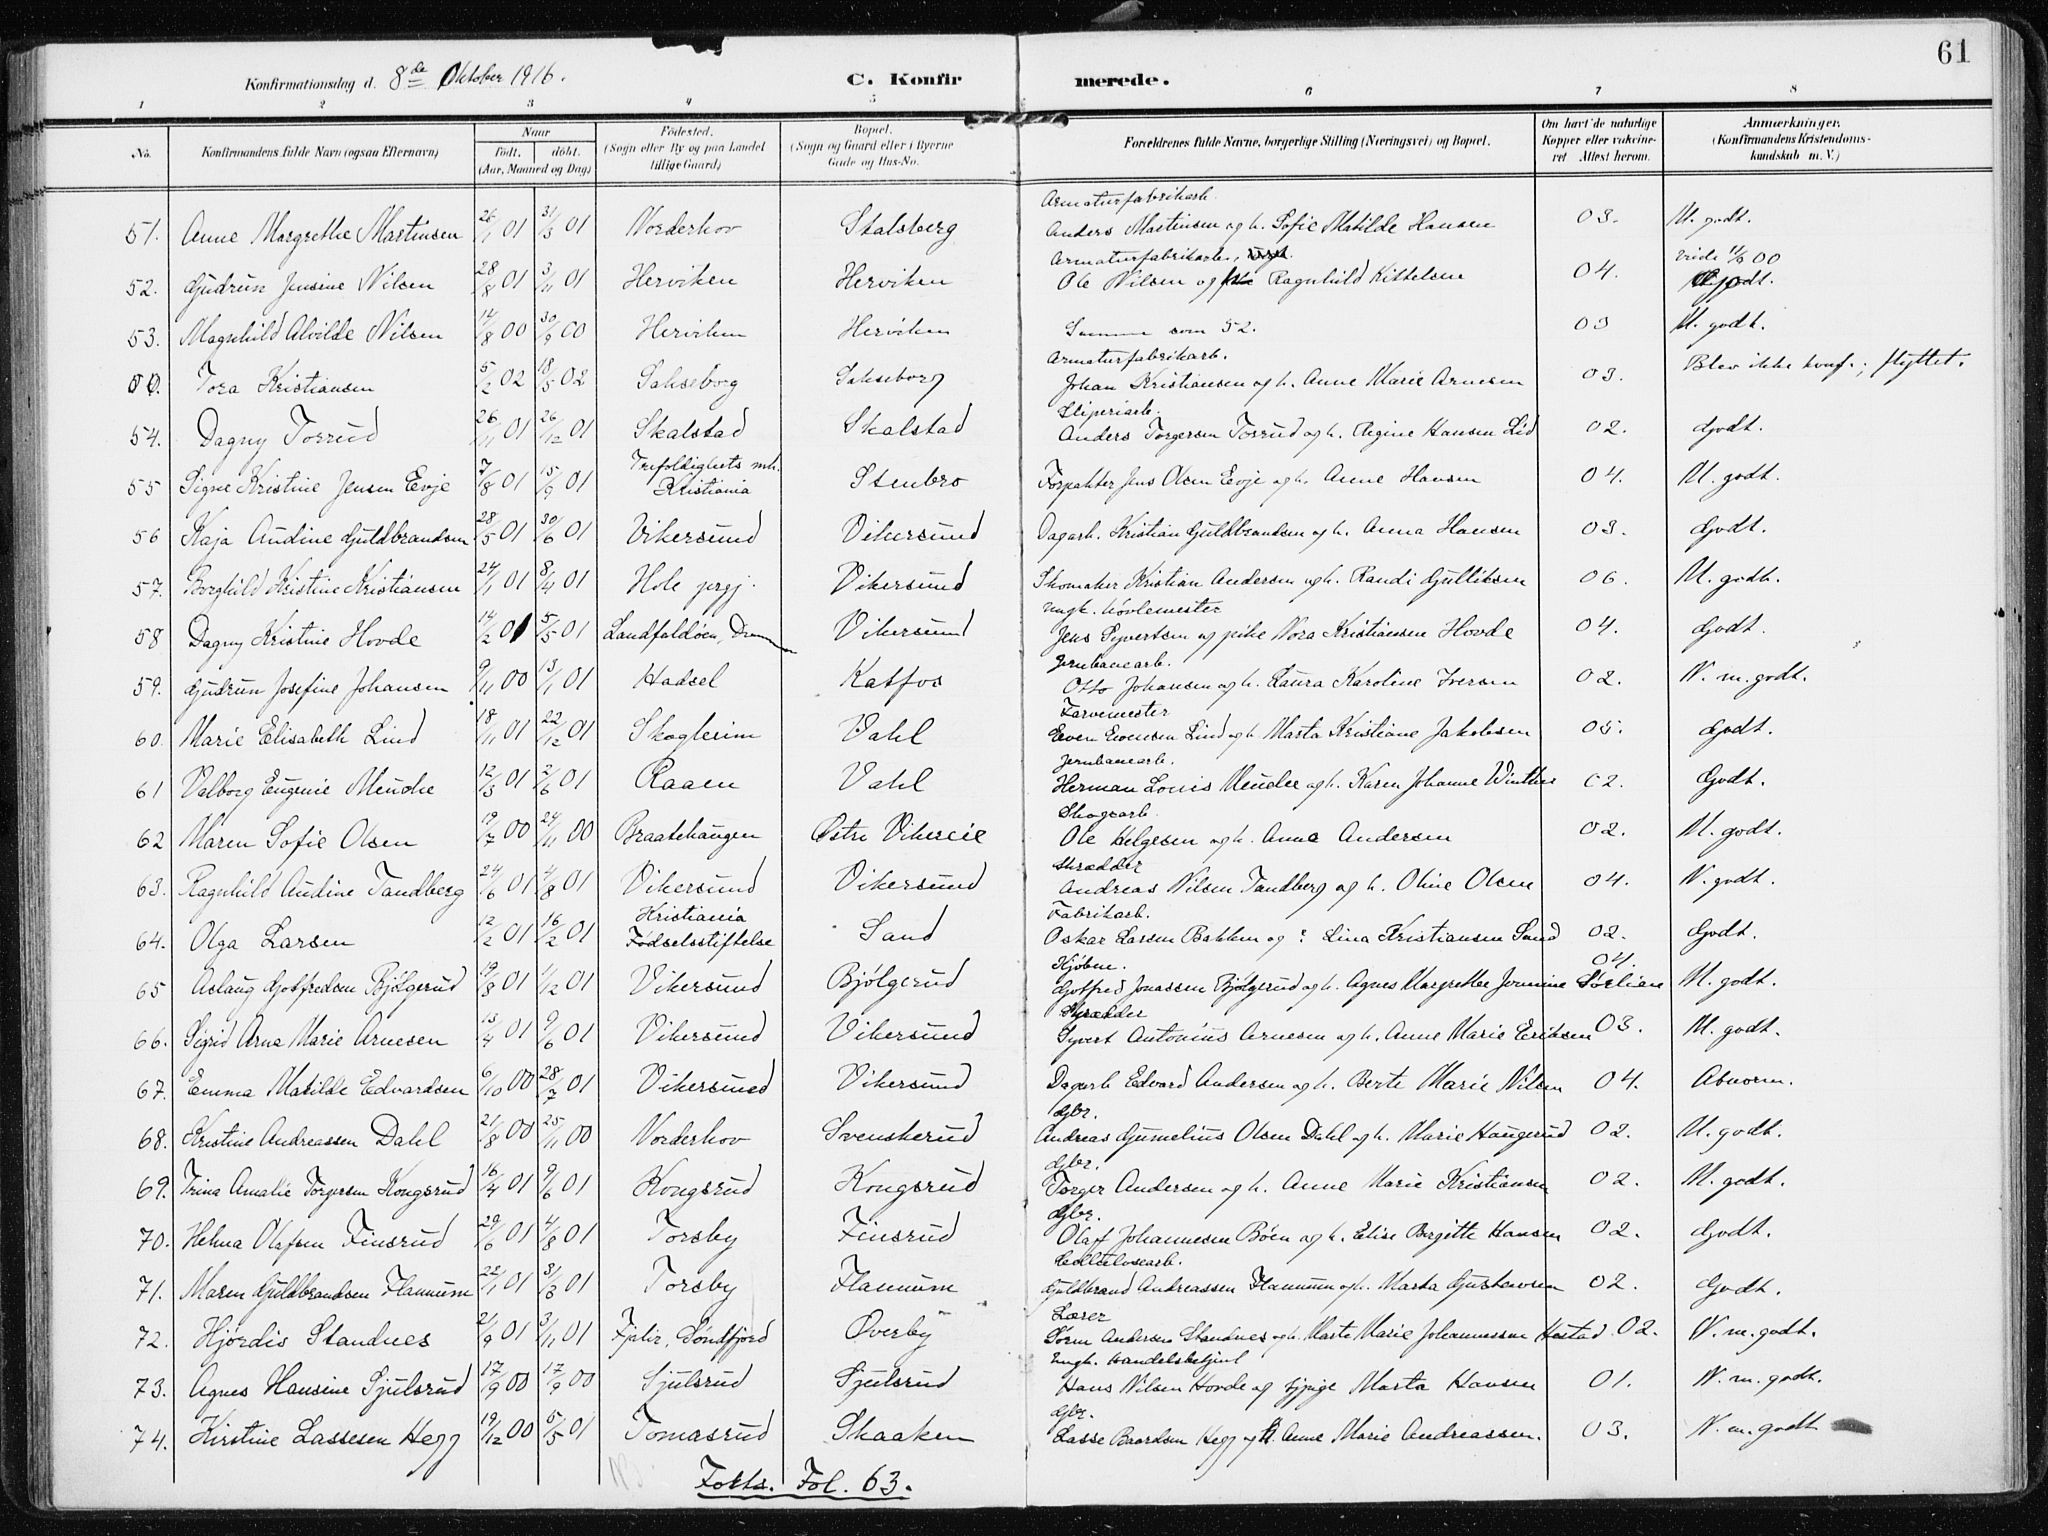 61
Konfirmationsdag d. 8de Oktober 1916. C. Konfirmerede.
1 2 3 4 5 6 7 8
No. Konfirmandens fulde Navn (ogsaa Efternavn) Naar født. døbt. (Aar, Maaned og Dag) Fødested. (Sogn eller By og paa Landet tillige Gaard) Bopæl. (Sogn og Gaard eller i Byerne Gade og Hus-No. Forældrenes fulde Navne, borgerlige Stilling (Næringsvei) og Bopæl. Om havt de naturlige Kopper eller vakcineret Attest herom. Anmærkninger. (Konfirmandens Kristendomskundskab m. V.)
Armaturfabrikarb.
51. Anne Margrethe Martinsen 26/1 01 31/3 01 Norderhov Stalsberg Anders Martinsen og h. Sofie Matilde Hansen 03. M. godt.
Armaturfabrikarb.,
52. Gudrun Jensine Nilsen 28/8 01 3/11 01 Herviken Herviken Ole Nilsen og Ragnhild Kittelsen 04. Godt.
53. Magnhild Alvilde Nilsen 14/8 00 30/9 00 Herviken Herviken Samme som 52. 03 M. godt.
Armaturfabrikarb.
Tora Kristiansen 5/2 02 18/5 02 Sakseborg Sakseborg Johan Kristiansen og h. Anne Marie Arnesen 03. Blev ikke konf.; flyttet.
Sliperiarb.
54. Dagny Torrud 26/11 01 26/12 01 Skalstad Skalstad Anders Torgersen Torrud og h. Regine Hansen Lid 02. Godt.
55 Signe Kristine Jensen Evje 7/8 01 15/9 01 Trefoldighets mh. Kristiania Stenbro Forpakter Jens Olsen Evje og h. Anne Hansen 04. M. godt.
56 Kaja Audine Guldbrandsen 28/5 01 30/6 01 Vikersund Vikersund Dagarb. Kristian Guldbrandsen og h. Anna Hansen 03. Godt.
57. Borghild Kristine Kristiansen 24/1 01 8/4 01 Hole prgj. Vikersund Skomaker Kristian Andersen og h. Randi Gulliksen 06. M. godt.
Ungk. Høvlemester
58 Dagny Kristine Hovde 14/2 01 5/5 01 Landfaldøen, Dramm Vikersund Jens Syvertsen og pike Nora Kristiansen Hovde 04. Godt.
Jernbanearb.
59. Gudrun Josefine Johansen 9/11 00 13/1 01 Hadsel Katfos Otto Johansen og h. Laura Karoline Iversen 02. N. m. godt.
Farvemester
60. Marie Elisabeth Lind 18/11 01 22/12 01 Skogleim Vahl Even Evensen Lind og h. Marta Kristiane Jakobsen 05. Godt.
Jernbanearb.
61 Valborg Eugenie Meudre 12/3 01 2/6 01 Raaen Vahl Herman Louis og h. Karen Johanne Winther 02. Godt.
Skogsarb.
62 Maren Sofie Olsen 19/7 00 24/11 00 Braatehaugen Østre Vikersie Ole Helgesen og h. Anna Andersen 02. M. godt.
Skrædder
63. Ragnhild Audine Tandberg 24/6 01 4/8 01 Vikersund Vikersund Andreas Nilsen Tandberg og h. Oline Olsen 04. N. godt.
Fabrikarb.
64. Olga Larsen 12/2 01 16/2 01 Kristiania Fødselsstiftelse Sand Oskar Larsen Bakken og ? Lina Kristiansen Sand 02. Godt.
Kjøbm.
65 Aslaug Gotfredsen Bjølgerud 19/8 01 1/12 01 Vikersund Bjølgerud Gotfred Jonassen Bjølgerud og h. Agnes Margrethe Jermine Sørlien 04. M. godt.
Skrædder
66. Sigrid Arna Marie Arnesen 13/4 01 9/6 01 Vikersund Vikersund Syvert Antonius Arnesen og h. Anne Marie Eriksen 03. M. godt.
67. Emma Matilde Edvardsen 6/10 00 28/7 01 Vikersund Vikersund Dagarb. Edvard Andersen og h. Berte Marie Nilsen 04. Abnorm.
Gbr.
68. Kristine Andreassen Dahl 21/8 00 25/11 00 Norderhov Svenskerud Andreas Gumelius Olsen Dahl og h. Marie Haugerud 02. M. godt.
Gbr.
69. Trina Amalie Torgersen Kongsrud 16/4 01 9/6 01 Kongsrud Kongsrud Torger Andersen og h. Anne Marie Kristiansen 02. M. godt.
Gbr.
70. Helma Olafsen Finsrud 29/6 01 4/8 01 Torsby Finsrud Olaf Johannesen Bøen og h. Elise Bergitte Hansen 02. Godt.
Cellulosearb.
71. Maren Guldbrandsen Flannum 22/1 01 31/3 01 Torsby Flannum Guldbrand Andreassen Flannum og h. Marta Gustavsen 02. Godt.
Lærer
72. Hjørdis Standnes 21/9 01 3/11 01 Fjaler, Søndfjord Overby Sørm Andersen Standnes og h. Marte Marie Johannessen Hestad 02. N. m. godt.
Ungk. Handelsbetjent
73. Agnes Hansine Sjulsrud 17/9 00 17/9 00 Sjulsrud Sjulsrud Hans Nilsen Hovde og pige Marta Hansen 01. N. m. godt.
Gbr.
74. Kirstine Lassesen Hegg 19/12 00 5/5 01 Tomasrud Skaaken Lasse Baardsen Hegg og h. Anne Marie Andreassen. 03. N. m. godt
Forts. Fol. 63.